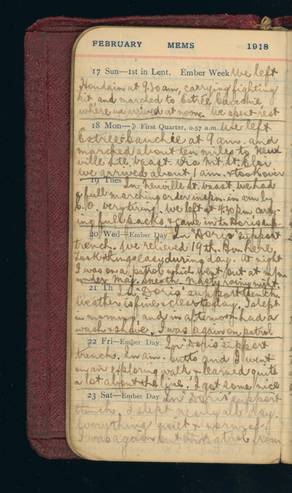 FEBRUARY MEMS 1918
17 Sun—1st in Lent. Ember Week We left
Houdain at 9.30 am, carrying fighting
kit and marched to Estrée Cauchie
where we arrived at noon. We spent rest
18 Mon—☽ First Quarter, 0.57 a.m. We left
Estree Cauchie at 9 am and
marched about ten miles to Neu
ville St. Vaast via Mt. St. Eloi
we arrived about 1 am.
19 Tues In Neuville St. Vaast, we had
a full marching order inspn. in a.m by
C.O. very tiring. We left at 4.30 pm carry-
ing full packs & came into Doris supt
20 Wed—Ember Day. In Doris support
trench. We relieved 19th Bn here,
Took things easy during day. At night
I was on a patrol which went out at
under Maj. Nasty rainy night
21 Th In "Doris" support trench
Weather is fine & clear today. I slept
in morning, and in afternoon had a
wash & shave. I was again on patrol
22 Fri—Ember Day. In "Doris" support
trench. In am. and I went
up an exploring walk & learned quite
a lot about the line. I got some nice
23 Sat—Ember Day. In Doris support
trench. I slept nearly all day.
Everything quiet &
I was again out on patrol from